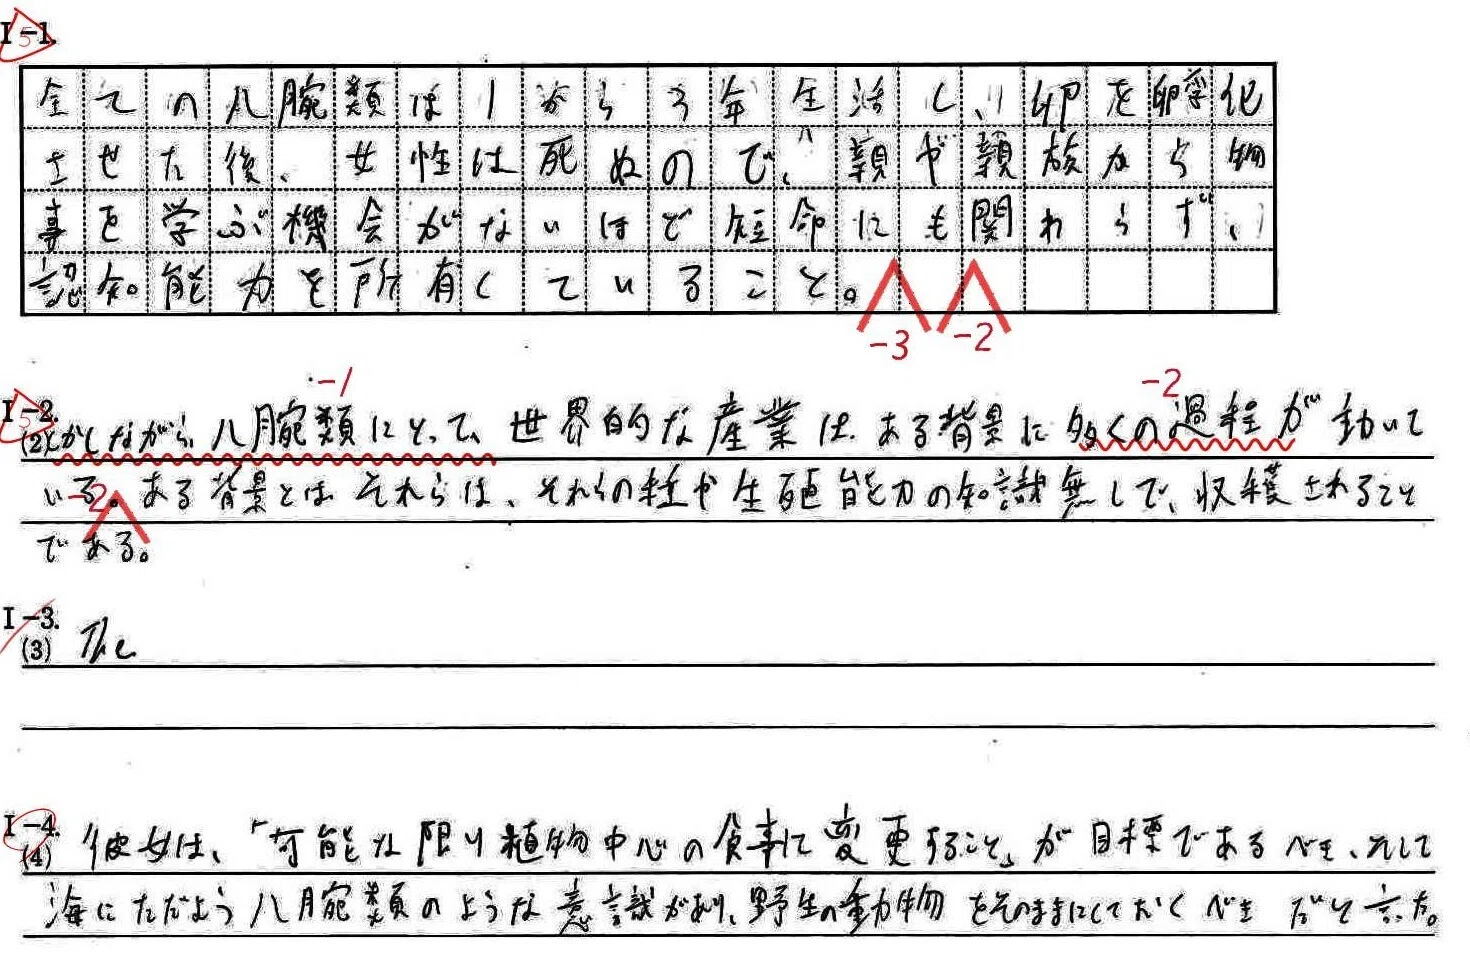 I-1.
5
全ての八腕類は1から3年生活し、卵を孵化
させた後、女性は死ぬので、親や親族から物
事を学ぶ機会がないほど短命にも関わらず、
認知能力を所有していること。
-3 -2
-1 -2
I-2.
5
(2)しかしながら、八腕類にとって、世界的な産業は、ある背景に多くの過程が動いて
いる。ある背景とは、それらは、それらの種や生殖能力の知識無しで、収穫されること
-2
である。
I-3.
(3) The
I-4.
(4) 彼女は、「可能な限り植物中心の食事に変更すること」が目標であるべき、そして
海にただよう八腕類のような意識があり、野生の動物をそのままにしておくべきだと言った。